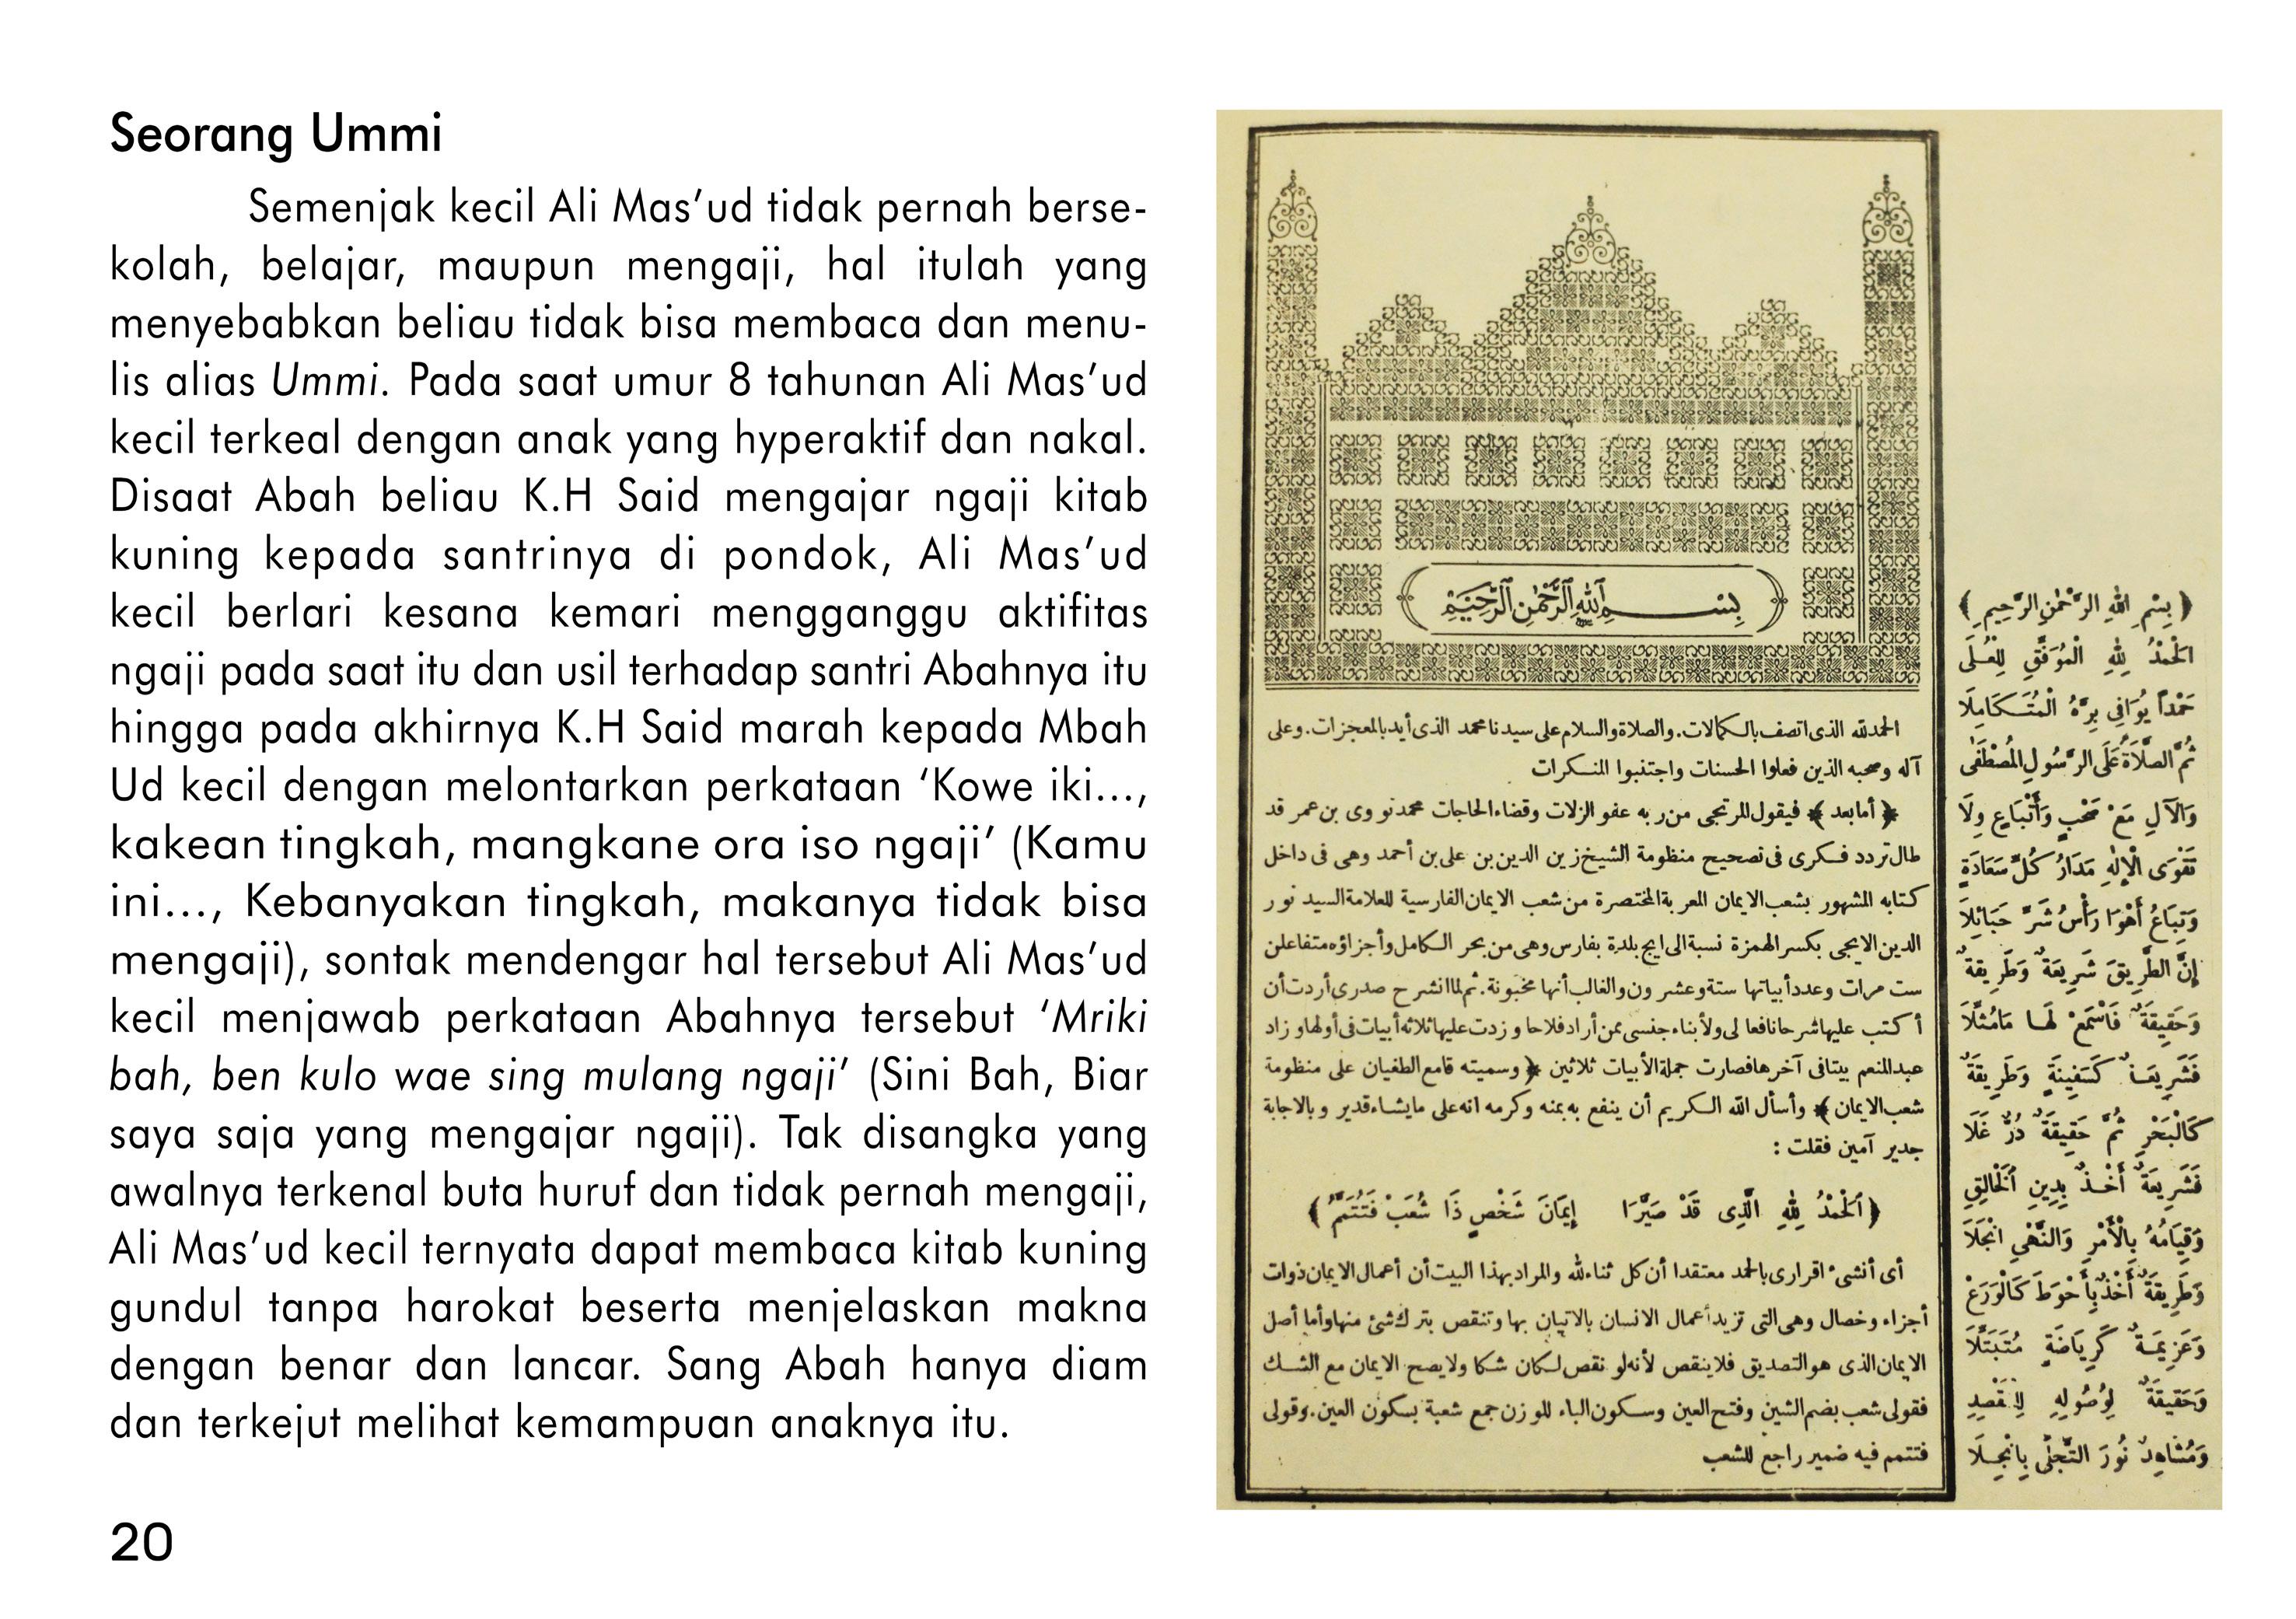 Seorang Ummi
Semenjak kecil Ali Mas’ud tidak pernah berse-
kolah, belajar, maupun mengaji, hal itulah yang
menyebabkan beliau tidak bisa membaca dan menu-
lis alias Ummi. Pada saat umur 8 tahunan Ali Mas’ud
kecil terkeal dengan anak yang hyperaktif dan nakal.
Disaat Abah beliau K.H Said mengajar ngaji kitab
kuning kepada santrinya di pondok, Ali Mas’ud
kecil berlari kesana kemari mengganggu aktifitas
ngaji pada saat itu dan usil terhadap santri Abahnya itu
hingga pada akhirnya K.H Said marah kepada Mbah
Ud kecil dengan melontarkan perkataan ‘Kowe iki...,
kakean tingkah, mangkane ora iso ngaji’ (Kamu
ini..., Kebanyakan tingkah, makanya tidak bisa
mengaji), sontak mendengar hal tersebut Ali Mas’ud
kecil menjawab perkataan Abahnya tersebut ‘Mriki
bah, ben kulo wae sing mulang ngaji’ (Sini Bah, Biar
saya saja yang mengajar ngaji). Tak disangka yang
awalnya terkenal buta huruf dan tidak pernah mengaji,
Ali Mas’ud kecil ternyata dapat membaca kitab kuning
gundul tanpa harokat beserta menjelaskan makna
dengan benar dan lancar. Sang Abah hanya diam
dan terkejut melihat kemampuan anaknya itu.
20
بِسْمِ اللهِ الرَّحْمٰنِ الرَّحِيمِ
الحمدلله الذى اتصف بالكمالات. والصلاة والسلام على سيدنا محمد الذى أيد بالمعجزات. وعلى
آله وصحبه الذين فعلوا الحسنات واجتنبوا المنكرات
﴿ أما بعد ﴾ فيقول المرتجى من ربه عفو الزلات وقضاء الحاجات محمد نووى بن عمر قد
طال تردد فكرى فى تصحيح منظومة الشيخ زين الدين بن على بن أحمد وهى فى داخل
كتابه المشهور بشعب الايمان المعربة المختصرة من شعب الايمان الفارسية للعلامة السيد نور
الدين الايجى بكسر الهمزة نسبة الى ايج بلدة بفارس وهى من بحر الكامل وأجزاؤه متفاعلن
ست مرات وعدد أبياتها ستة وعشرون والغالب أنها مخبونة. ثم لما انشرح صدرى أردت أن
أكتب عليها شرحا نافعا لى ولأبناء جنسى ممن أراد فلاحا وزدت عليها ثلاثة أبيات فى أولها وزاد
عبد المنعم بيتا فى آخرها فصارت جملة الأبيات ثلاثين ﴿ وسميته قامع الطغيان على منظومة
شعب الايمان ﴾ وأسأل الله الكريم أن ينفع به بمنه وكرمه انه على ما يشاء قدير وبالاجابة
جدير آمين فقلت :
﴿ اَلْحَمْدُ لِلّٰهِ الَّذِى قَدْ صَيَّرَا إِيمَانَ شَخْصٍ ذَا شُعَبْ فَتُتَمَّمُ ﴾
أى أنشىء اقرارى بالحمد معتقدا أن كل ثناء لله والمراد بهذا البيت أن أعمال الايمان ذوات
أجزاء وخصال وهى التى تزيد أعمال الانسان بالاتيان بها وتنقص بترك شئ منها وأما أصل
الايمان الذى هو التصديق فلا ينقص لأنه لو نقص لكان شكا ولا يصح الايمان مع الشك
فقولى شعب بضم الشين وفتح العين وسكون الباء للوزن جمع شعبة بسكون العين. وقولى
فتتمم فيه ضمير راجع للشعب
﴿ بِسْمِ اللهِ الرَّحْمٰنِ الرَّحِيمِ ﴾
اَلْحَمْدُ لِلّٰهِ الْمُوَفَّقِ لِلْعُلَى
حَمْدًا يُوَافِى بِرَّهُ الْمُتَكَامِلَا
ثُمَّ الصَّلَاةُ عَلَى الرَّسُولِ الْمُصْطَفَى
وَالْآلِ مَعْ صَحْبٍ وَأَتْبَاعٍ وِلَا
تَقْوَى الْإِلٰهِ مَدَارُ كُلِّ سَعَادَةٍ
وَتِبَاعُ أَهْوَا رَأْسُ شَرِّ حَبَائِلَا
إِنَّ الطَّرِيقَ شَرِيعَةٌ وَطَرِيقَةٌ
وَحَقِيقَةٌ فَاسْمَعْ لَهَا مَامُثِّلَا
فَشَرِيعَةٌ كَسَفِينَةٍ وَطَرِيقَةٌ
كَالْبَحْرِ ثُمَّ حَقِيقَةٌ دُرٌّ غَلَا
فَشَرِيعَةٌ أَخْذٌ بِدِينِ الْخَالِقِ
وَقِيَامُهُ بِالْأَمْرِ وَالنَّهْىِ انْجَلَا
وَطَرِيقَةٌ أَخْذٌ بِأَحْوَطَ كَالْوَرَعْ
وَعَزِيمَةٌ كَرِيَاضَةٍ مُتَبَتِّلَا
وَحَقِيقَةٌ لِوُصُولِهِ لِلْمَقْصِدِ
وَمُشَاهِدٌ نُورَ التَّجَلِّى بِانْجِلَا